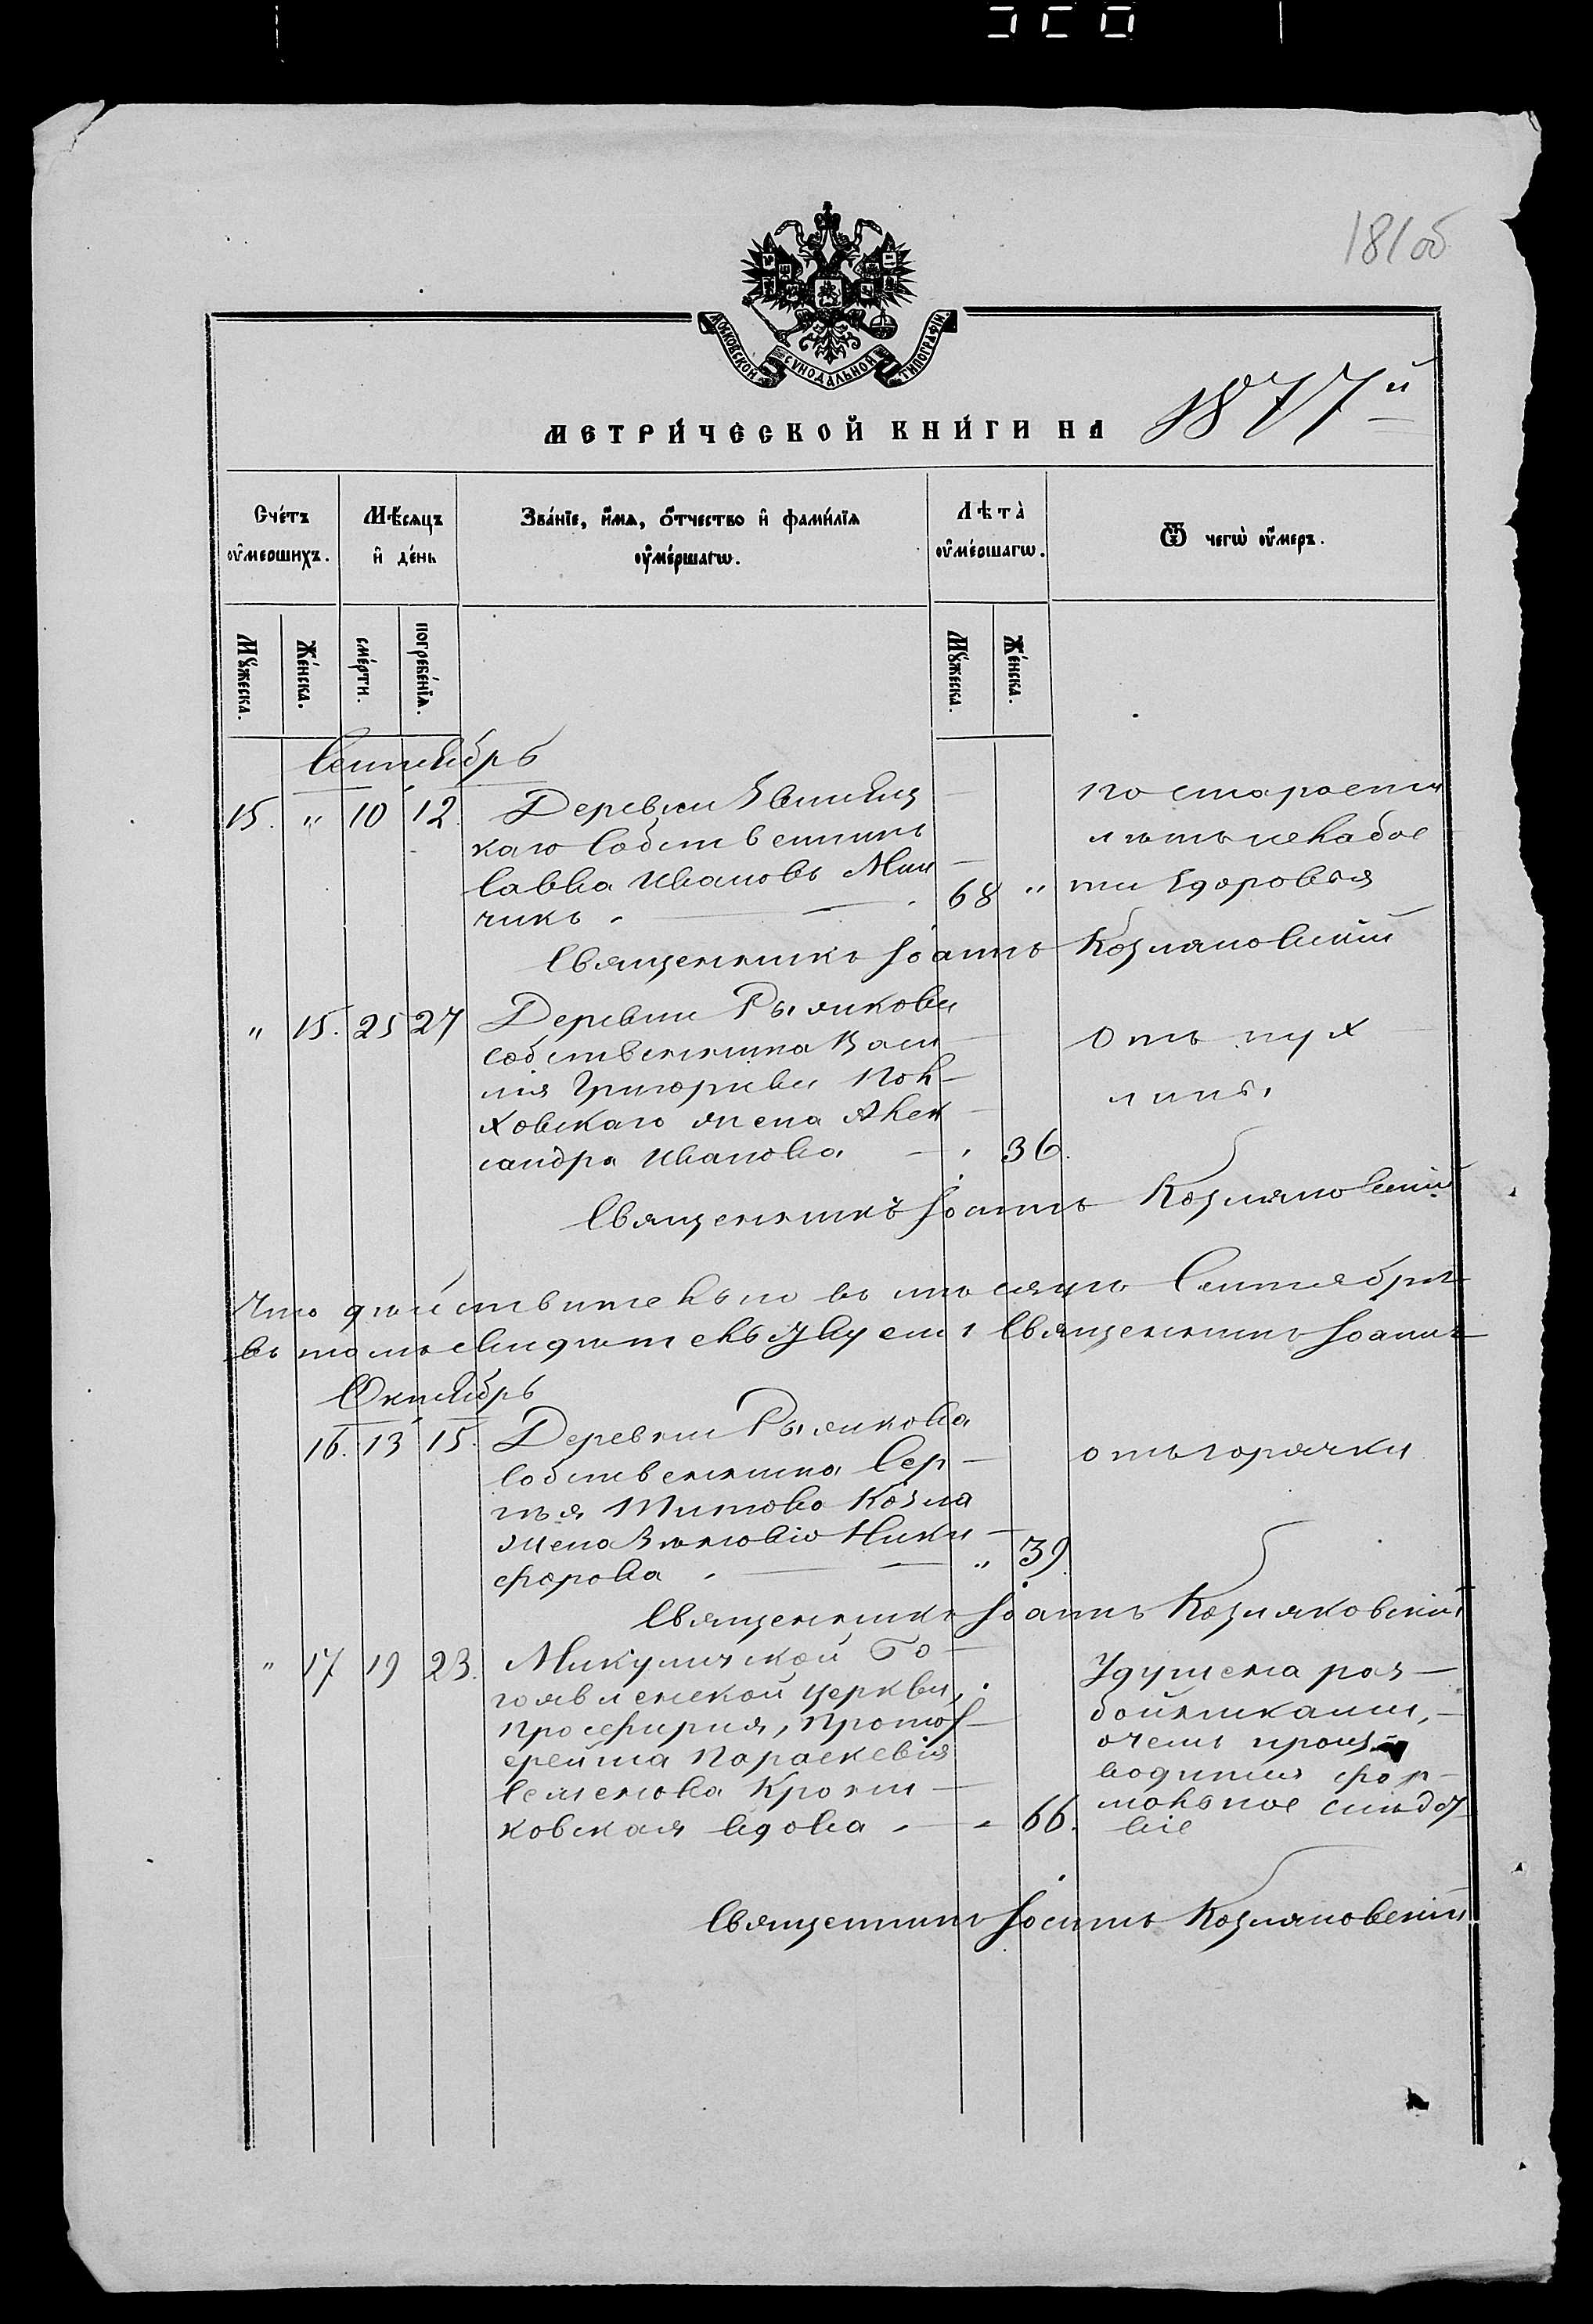 181об
МОСКОВСКОЙ СѴНОДАЛЬНОЙ ТИПОГРАФІИ.
МЕТРИ́ЧЕСКОЙ КНИ́ГИ НА 1877й
Сче́тъ оу҆ме́ршихъ.
Мѣ́сяцъ и҆ де́нь
Зва́нїе, и҆́мѧ, ѻ҆́тчество и҆ фами́лїѧ оу҆ме́ршагѡ.
Лѣта̀ оу҆ме́ршагѡ.
Ѿ чегѡ̀ оу҆́меръ.
Мꙋ́жеска.
Же́нска.
сме́рти.
погребе́нїѧ.
Мꙋ́жеска.
Же́нска.
Сентябрь
15. " 10 12. Деревни
каго Собственникъ
Савва Ивановъ Мин
чикъ. 68 "
по старости
лѣтъ и слабос
ти здоровья
Священникъ Іоаннъ Козляновскій
" 15. 25 27 Деревни Рыликова
собственника Васи
лія Григорьева
ховскаго жена Алек
сандра Иванова " 36.
Отъ пух
лины
Священникъ Іоаннъ Козляновскій
Что дѣйствительно въ мѣсяцѣ Сентябрѣ
въ томъ свидѣтельствуетъ Священникъ Іоаннъ
Октябрь
16. 13 15. Деревни Рыликова
Собственника Сер
гѣя Титова Козла
жена Зиновія Ники
форова " 39.
отъ горячки
Священникъ Іоаннъ Козляновскій
" 17 19 23. Микуличской Бо
гоявленской церкви,
просфирня, Протоі
ерейша Параскевія
Семенова Крони
ковская вдова " 66.
Удушена раз
бойниками,
о чемъ произ
водится фор
мальное слѣдст
віе
Священникъ Іоаннъ Козляновскій